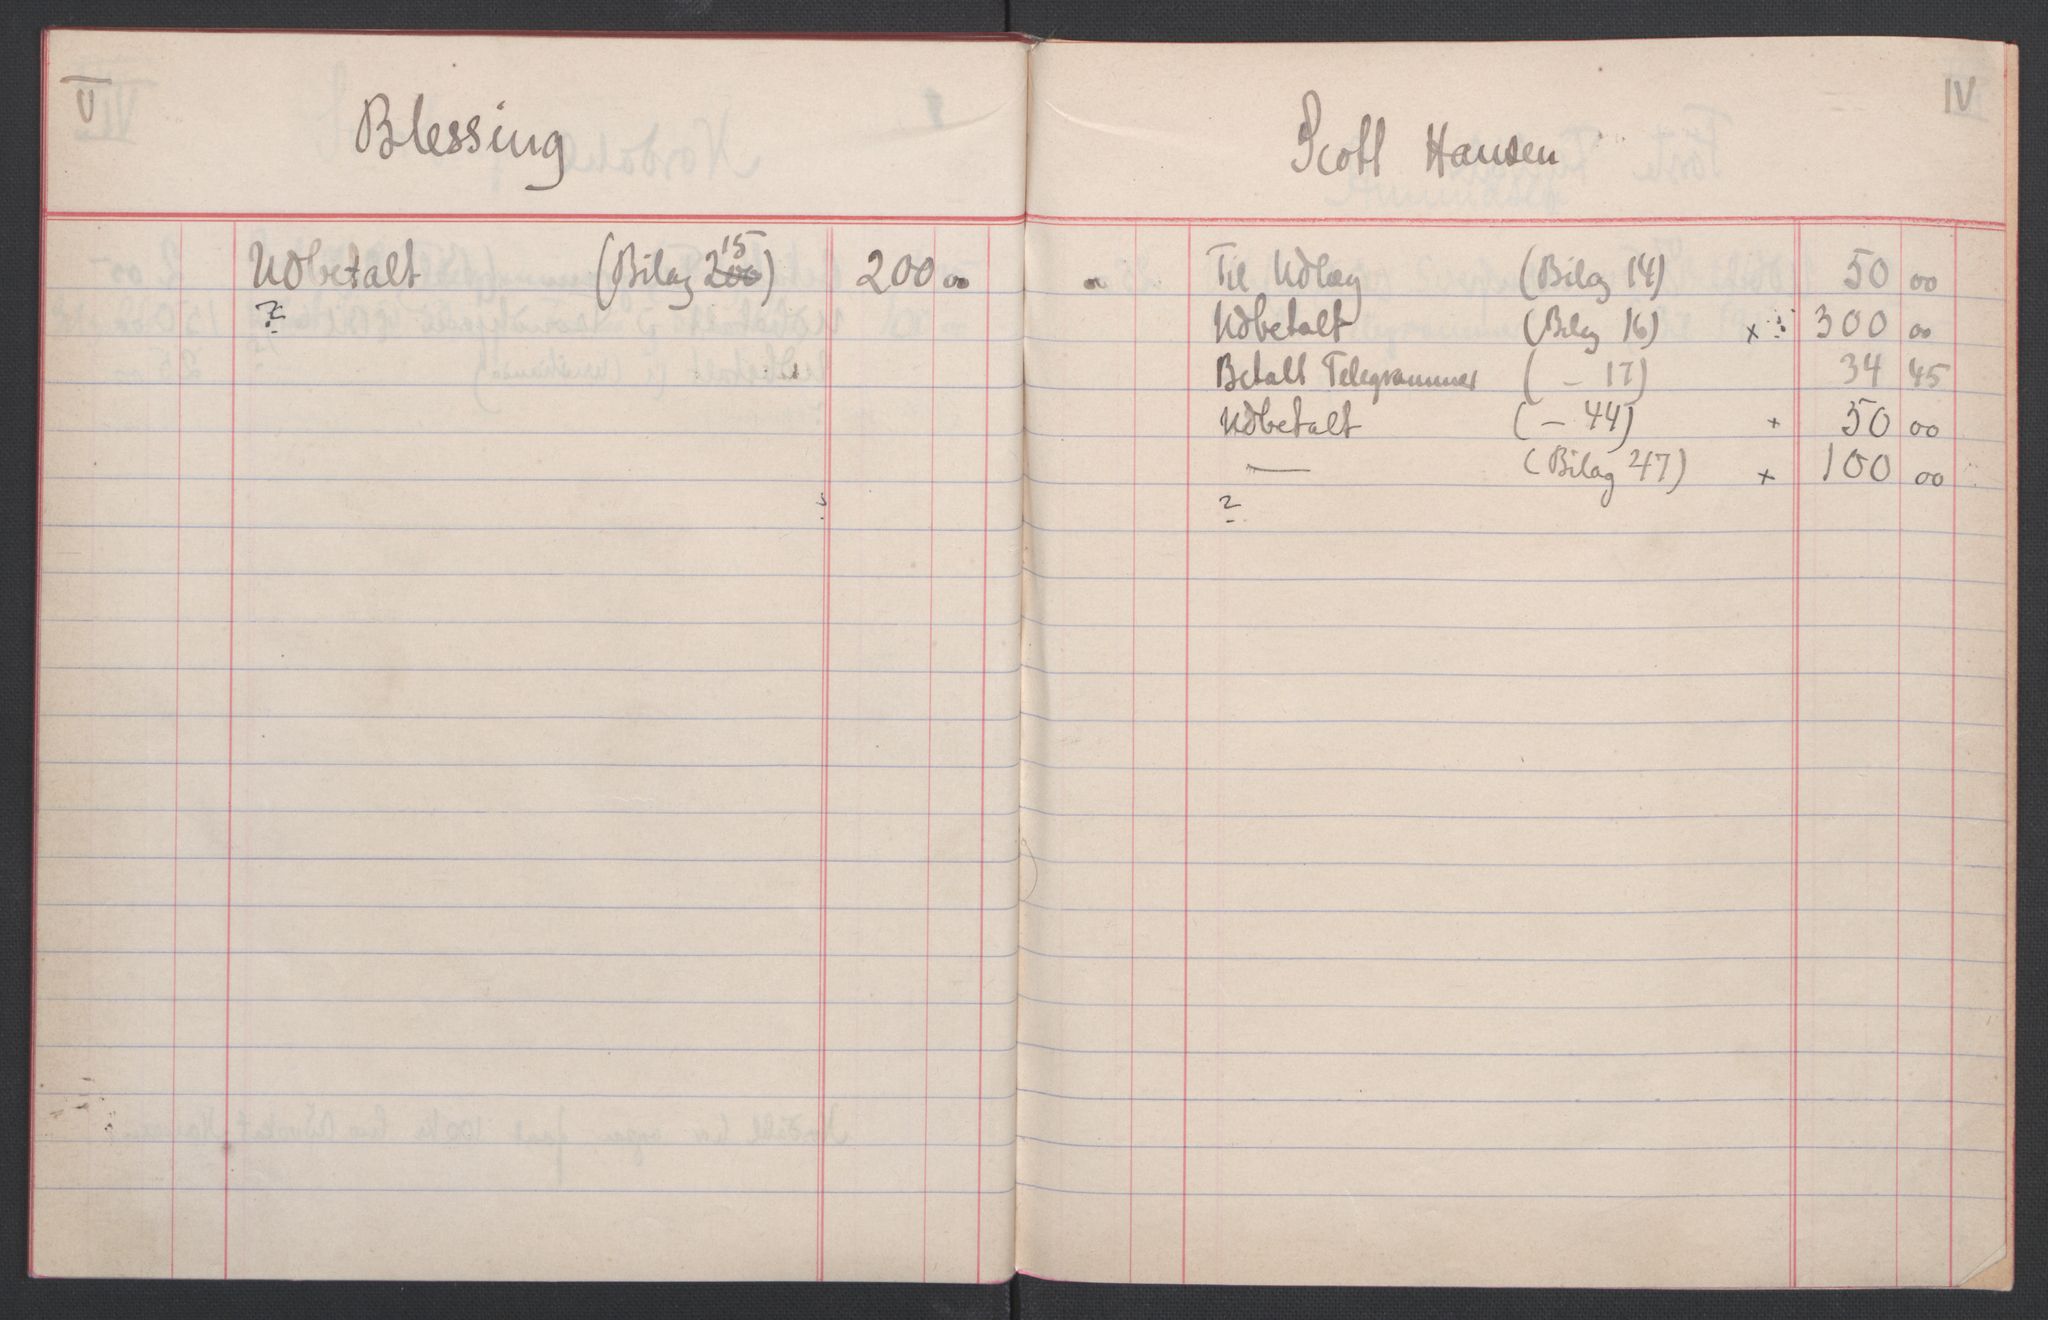 V
Blessing
Udbetalt (Bilag 200 15) 200 00
?
IV
Scott Hansen
Til Udlæg (Bilag 14) 50 00
Udbetalt (Bilag 16) × 300 00
Betalt Telegrammer ( — 17) 34 45
Udbetalt ( — 44) × 50 00
— (Bilag 47) × 100 00
?